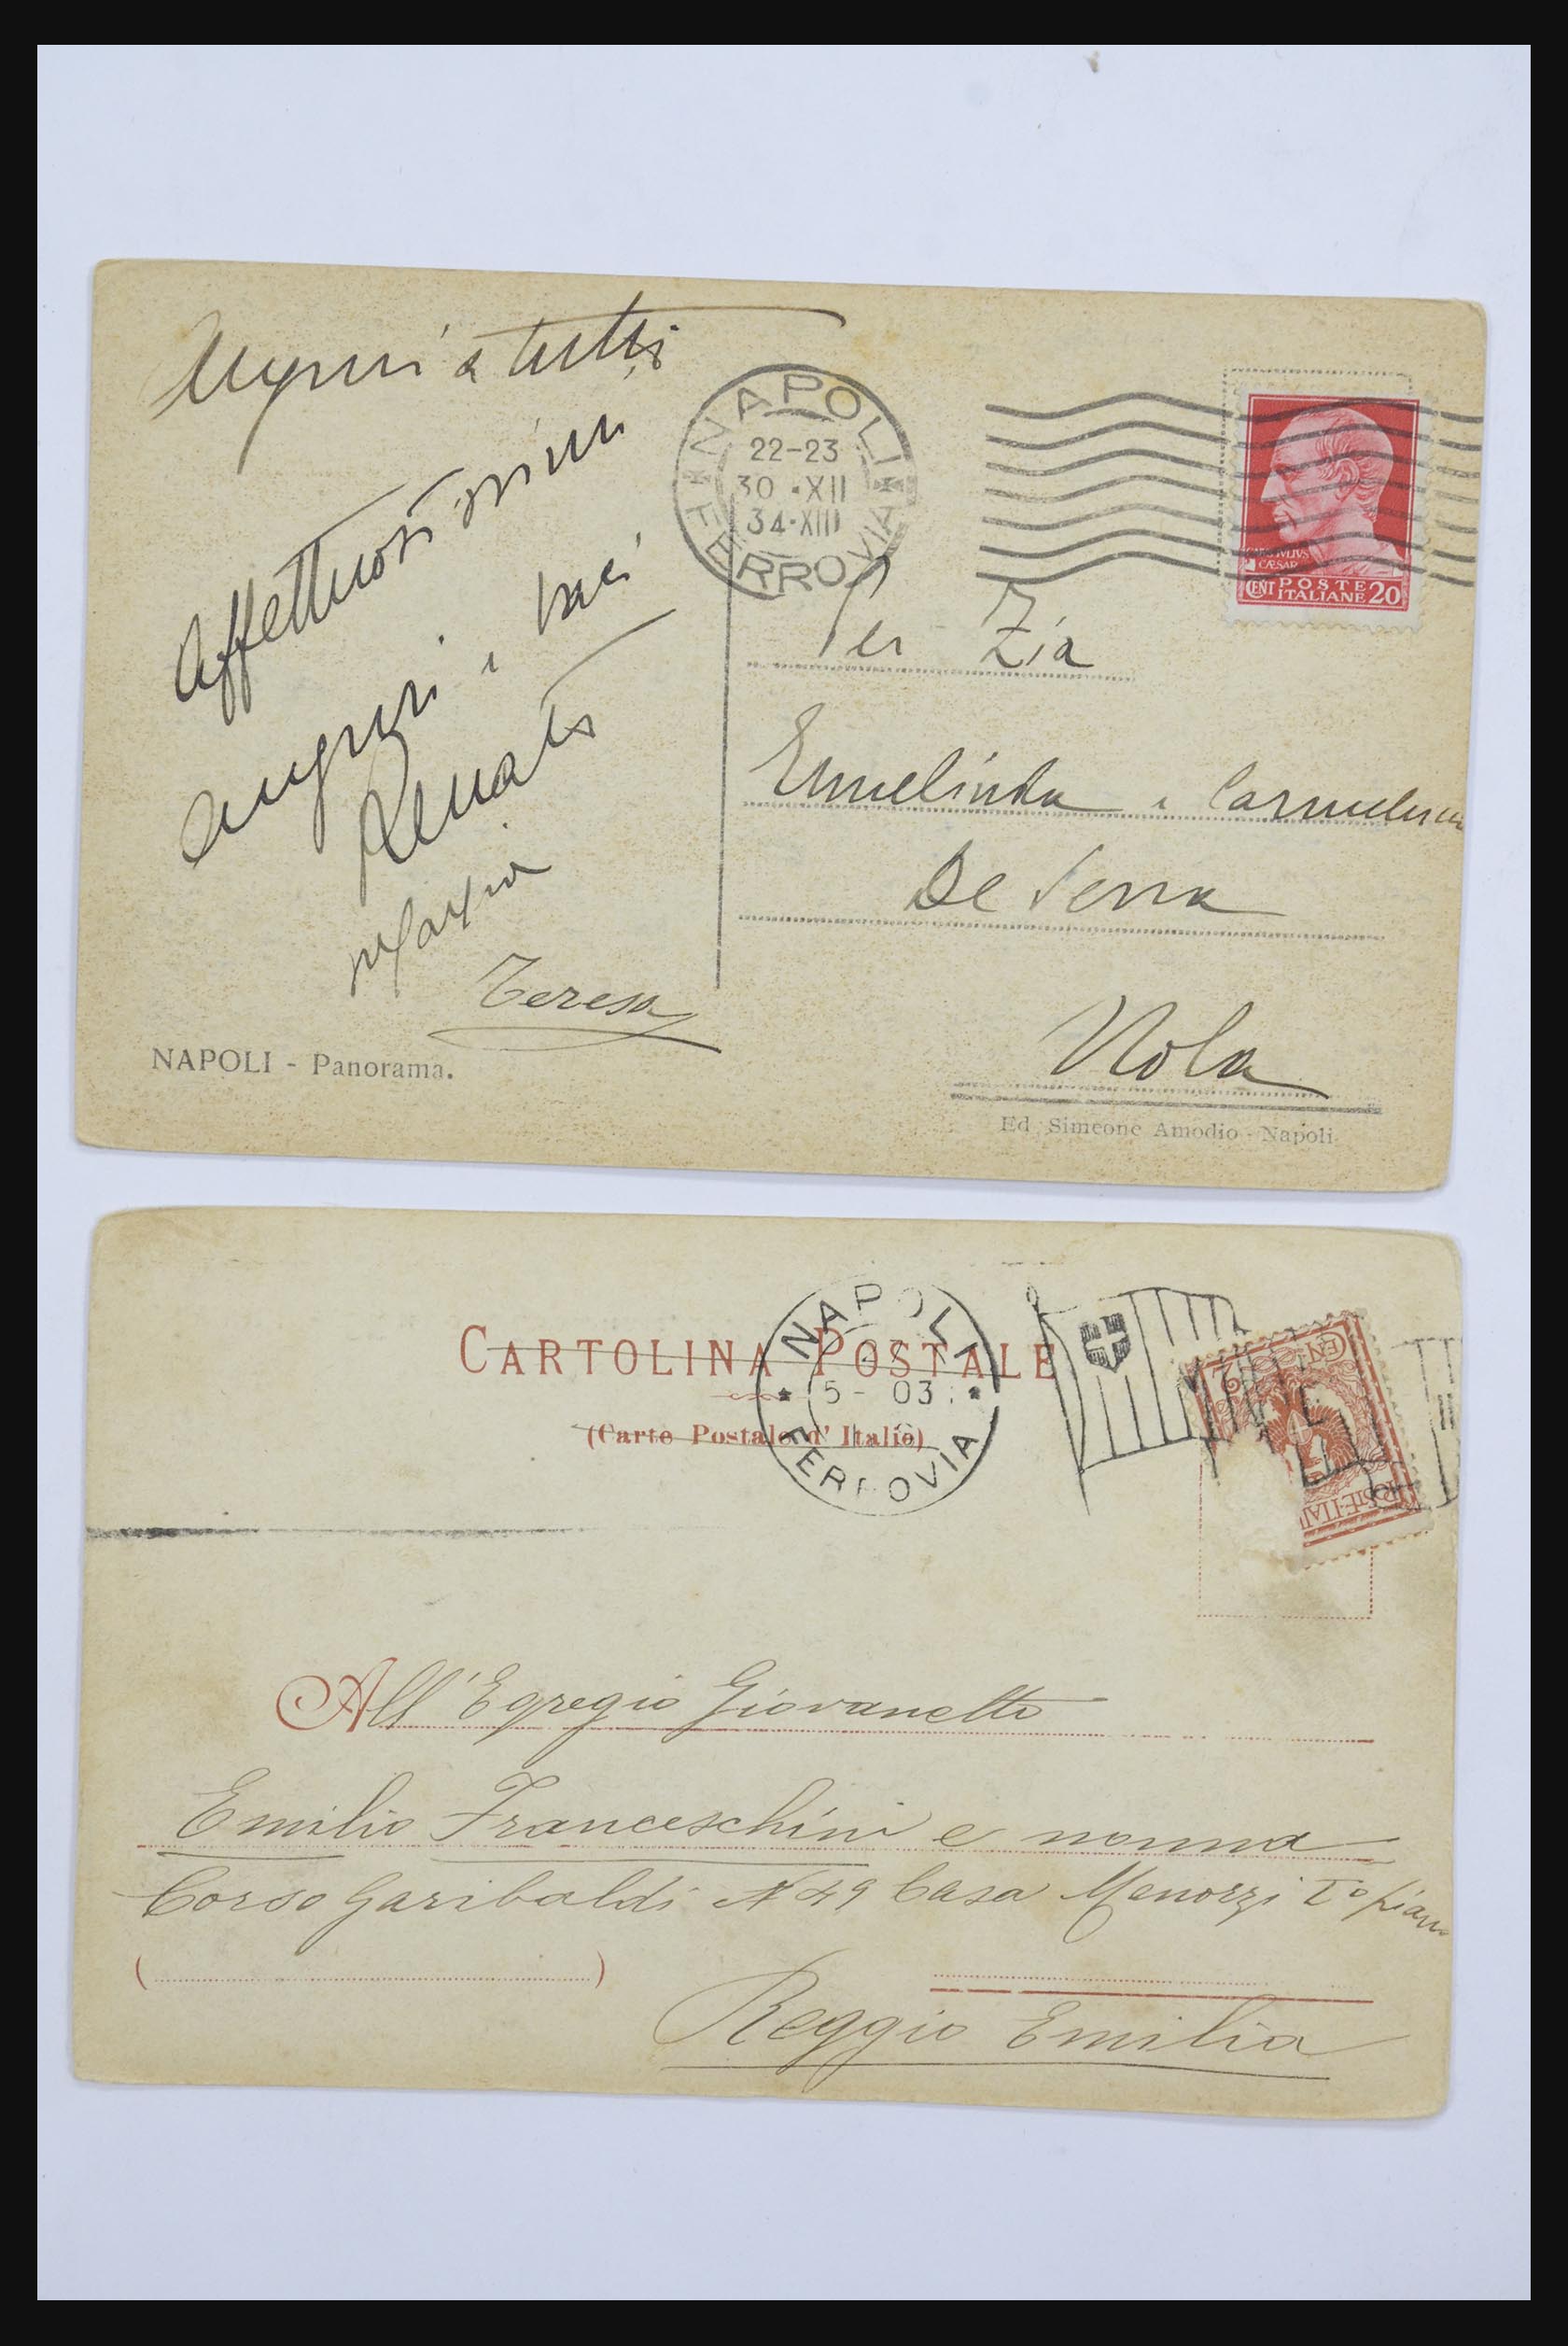 Auguri a tutti
Affettuosissimi
auguri e baci
Renato
Teresa
NAPOLI - Panorama.
NAPOLI
22-23
30 · XII
34 · XIII
FERROVIA
CÆSAR
CENT POSTE ITALIANE 20
Per Zia
Ermelinda e Carmelina
De Serra
Nola
Ed. Simeone Amodio - Napoli
CARTOLINA POSTALE
(Carte Postale d' Italie)
NAPOLI
5 - 03
FERROVIA
CEN 2
POSTE ITAL
All' Egregio Giovanetto
Emilio Franceschini e nonna
Corso Garibaldi N 49 Casa Menozzi Iº piano
Reggio Emilia